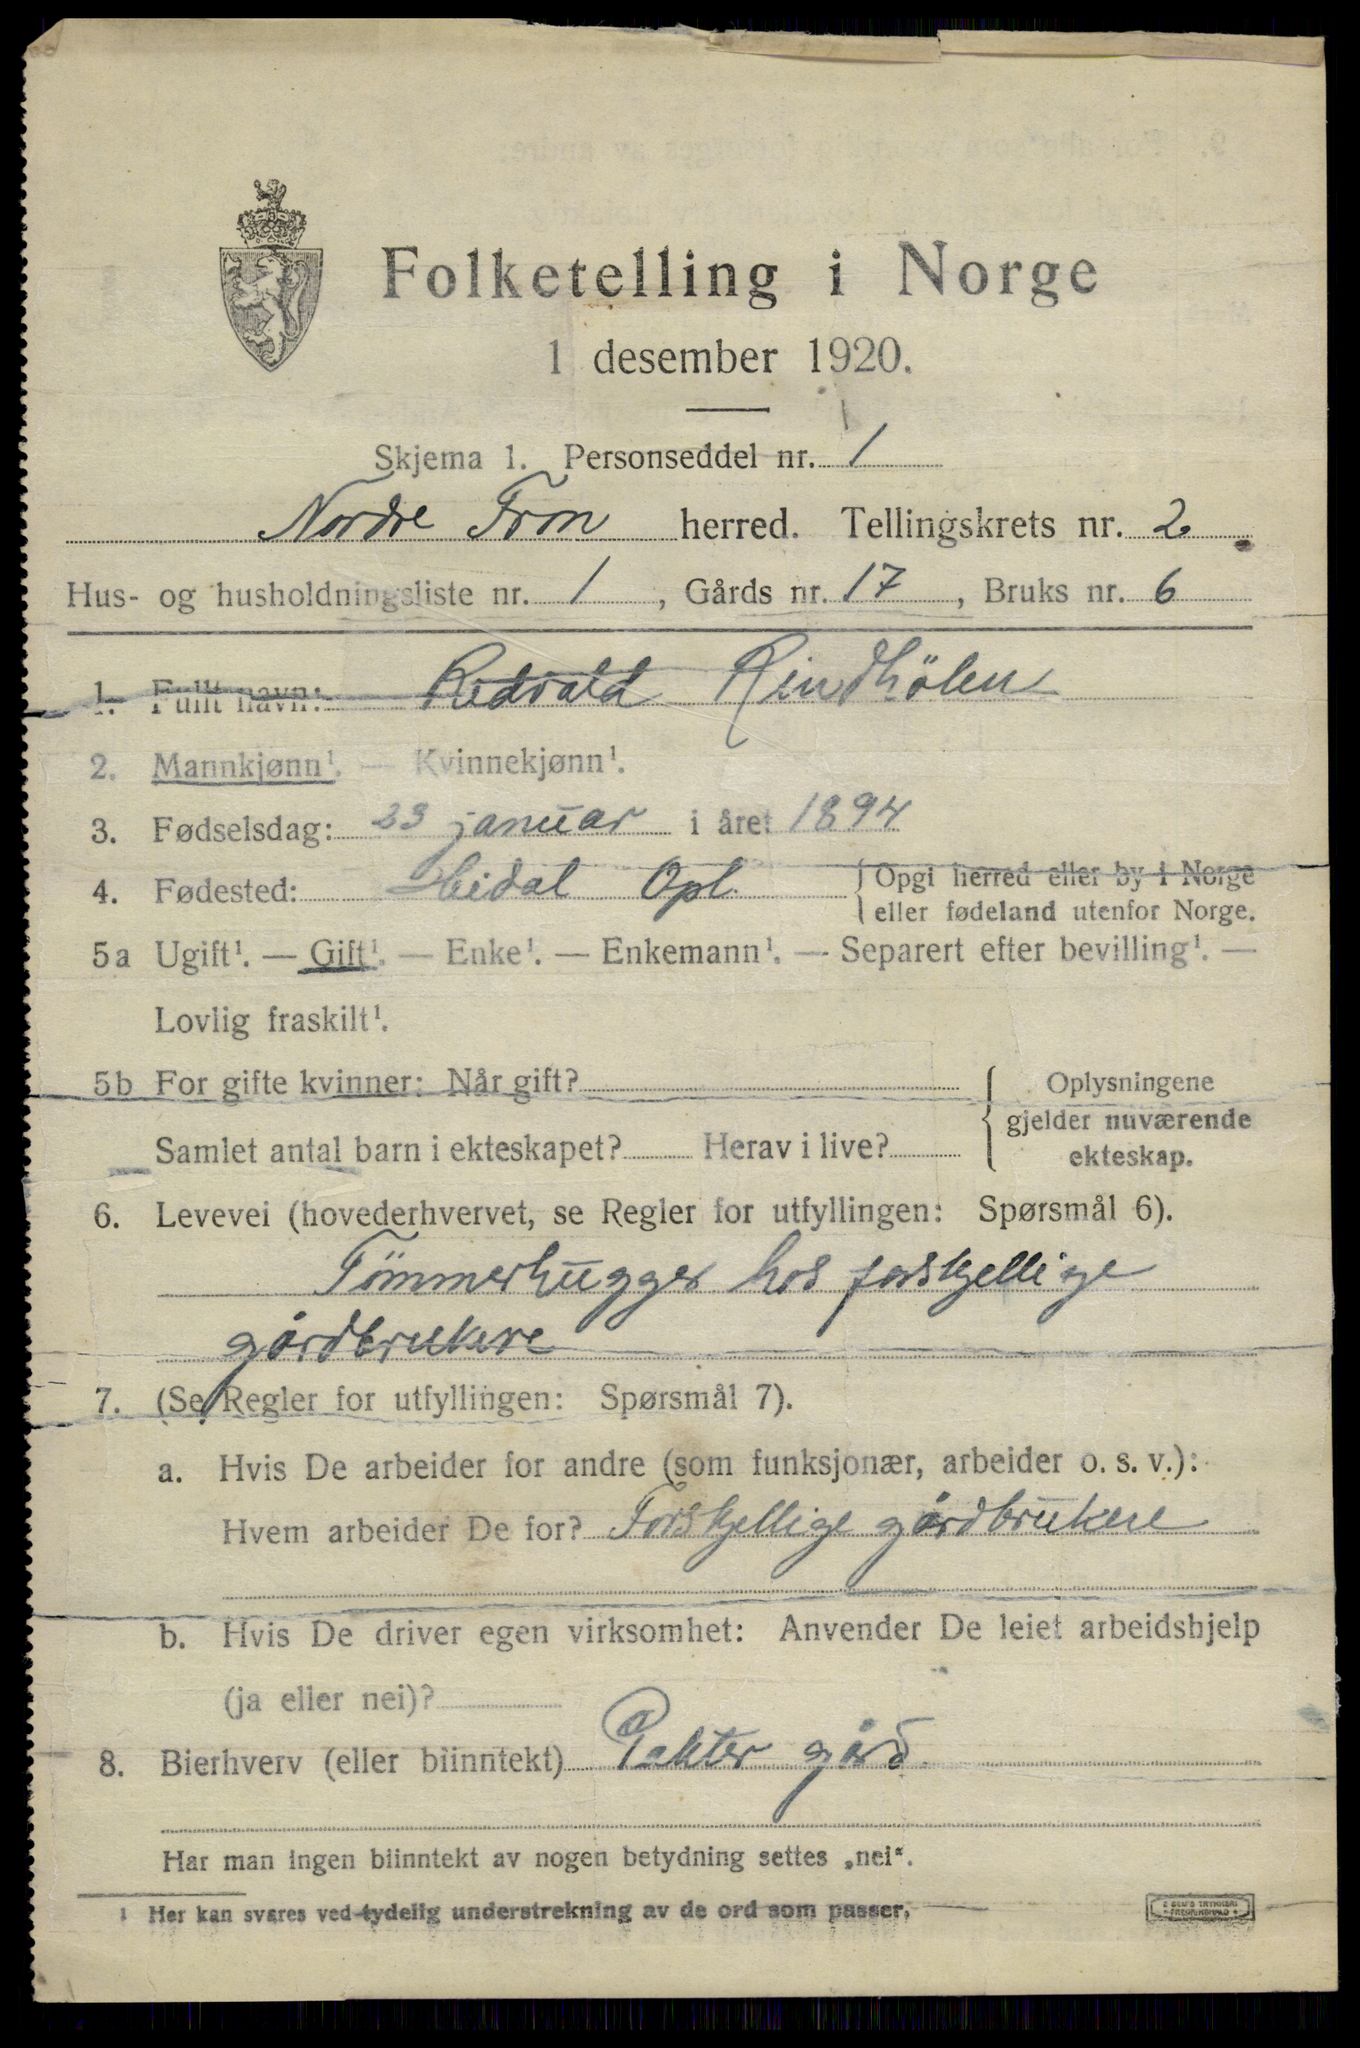 Folketelling i Norge
1 desember 1920.
Skjema 1. Personseddel nr. 1
Nordre Fron herred. Tellingskrets nr. 2
Hus- og husholdningsliste nr. 1, Gårds nr. 17, Bruks nr. 6
1. Fullt navn: Redvald Rindhölen
2. Mannkjønn¹. — Kvinnekjønn¹.
3. Fødselsdag: 23 januar i året 1894
4. Fødested: Heidal Opl. { Opgi herred eller by i Norge
eller fødeland utenfor Norge.
5a Ugift¹. — Gift¹. — Enke¹. — Enkemann¹. — Separert efter bevilling¹. —
Lovlig fraskilt¹.
5b For gifte kvinner: Når gift? { Oplysningene
gjelder nuværende
Samlet antal barn i ekteskapet? Herav i live? ekteskap.
6. Levevei (hovederhvervet, se Regler for utfyllingen: Spørsmål 6).
Tömmerhugger hos forskjellige
gårdbrukere
7. (Se Regler for utfyllingen: Spørsmål 7).
a. Hvis De arbeider for andre (som funksjonær, arbeider o. s. v.):
Hvem arbeider De for? Forskjellige gårdbrukere
b. Hvis De driver egen virksomhet: Anvender De leiet arbeidshjelp
(ja eller nei)?
8. Bierhverv (eller biinntekt) Pakter gård
Har man ingen biinntekt av nogen betydning settes „nei“.
1 Her kan svares ved tydelig understrekning av de ord som passer.